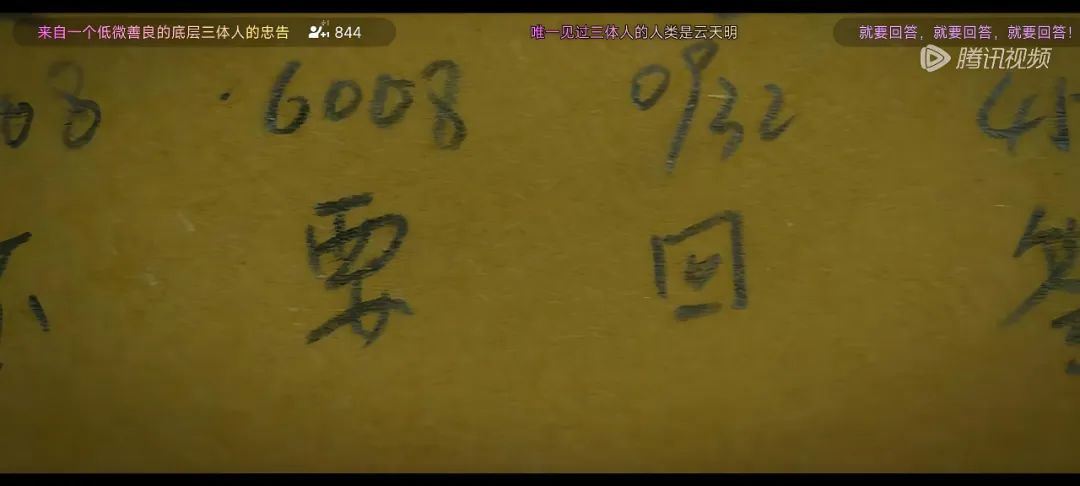 来自一个低微善良的底层三体人的忠告 +1 844 唯一见过三体人的人类是云天明 就要回答，就要回答，就要回答！
腾讯视频
08 · 6008 0932
要 回 答